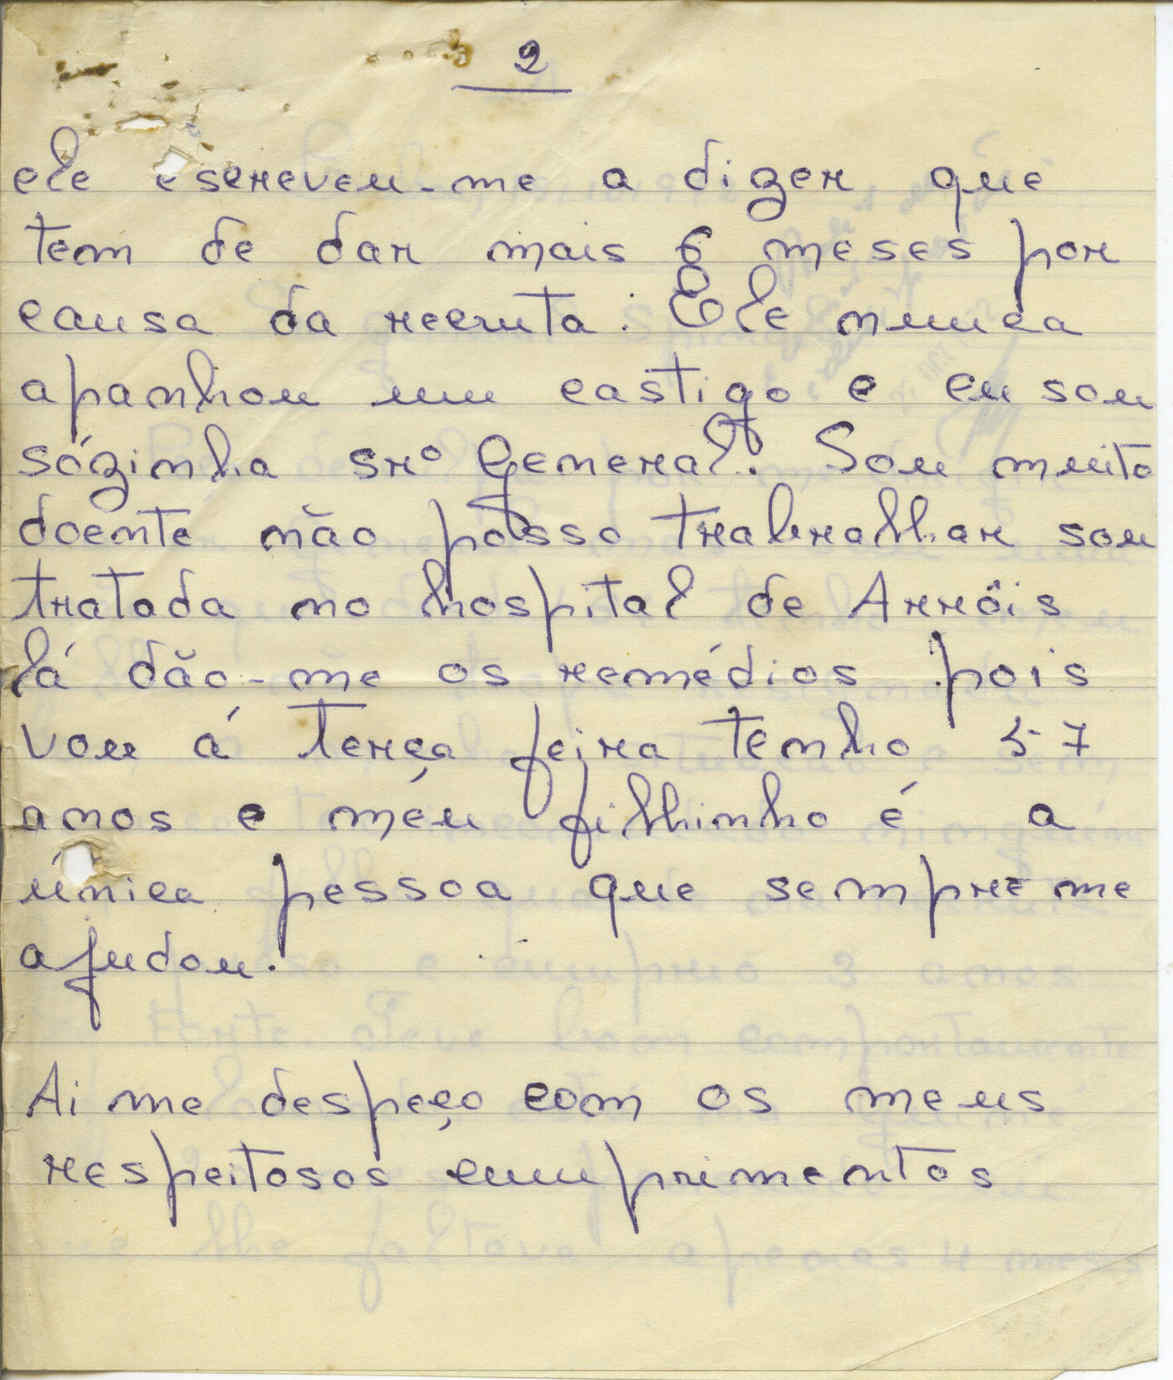 2
ele escreveu-me a dizer que
tem de dar mais 6 meses por
causa da recruta. Ele nunca
apanhou um castigo e eu sou
sózinha snrº General. Sou muito
doente não posso trabralhar sou
tratada no hospital de Arrôis
lá dão-me os remédios pois
vou á terça feira tenho 57
anos e méu filhinho é a
única pessoa que sempre me
ajudou.
Ai me despeço com os meus
respeitosos cumprimentos